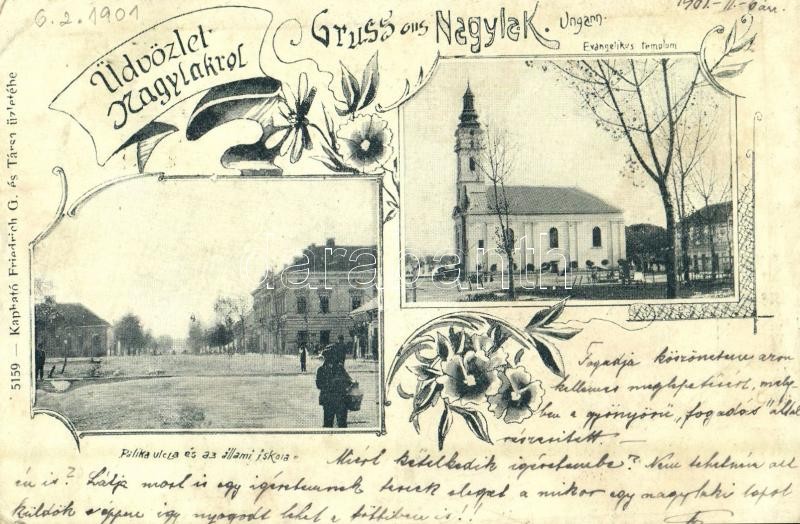 6.2.1901
1901-II-6án.
Üdvözlet
Nagylakról
Gruss aus Nagylak. Ungarn.
Evangelikus templom
5159 — Kapható Friedrich G. és Társa üzletébe
darabanth
Palika utcza és az állami iskola.
Fogadja köszönetem azon
kellemes meglepetésért, mely-
ben a gyönyörű „fogadás" által
részesített —
Miért kételkedik igéretemben? Nem tehetném azt
én is? Látja most is egy igéretemnek teszek eleget a mikor egy nagylaki lapot
küldök s éppen így nyugodt lehet a többiben is!!